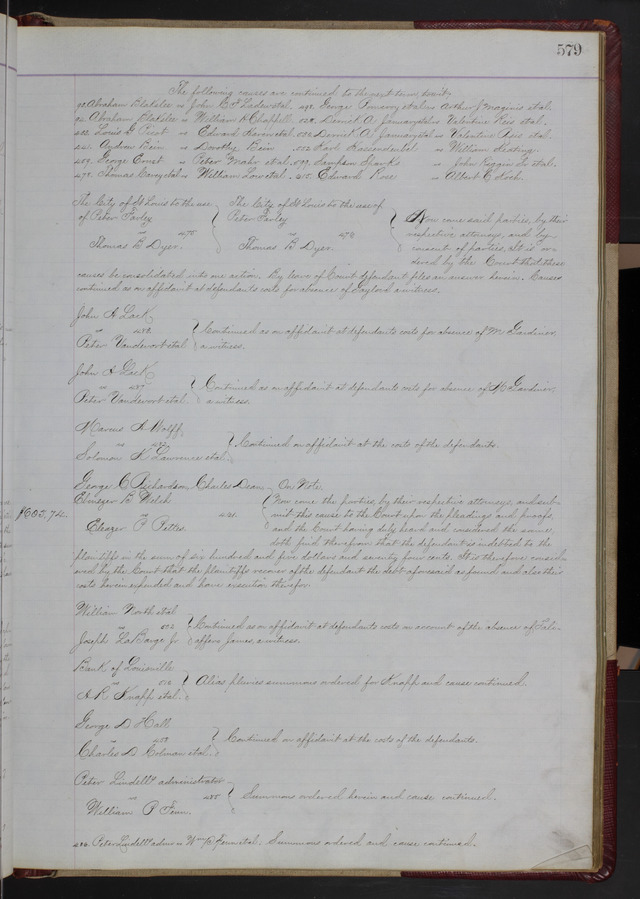 579
The following causes are continued to the next term, towit:
Abraham Blakslee vs John C. F. Luder et al. George Pomeroy et al vs Arthur J. Maginis et al.
Abraham Blakslee vs William H. Chappell. Derrick A. January et al vs Valentine Reis et al.
Louis G. Picot vs Edward Haren et al. Derrick A. January et al vs Valentine Reis et al.
Andrew Bein vs Dorothy Bein. Karl Hassendeubel vs William Keating.
George Ernst vs Peter Mahr et al. Sampson Shanks vs John Riggin Jr et al.
Thomas vs William Low et al. Edward Rose vs Albert C. Koch.
The City of St Louis to the use The City of St Louis to the use of
of Peter Farley Peter Farley Now come said parties, by their
vs 478 vs 479 respective attorneys, and by
Thomas B. Dyer. Thomas B. Dyer. consent of parties, it is or-
dered by the Court that these
causes be consolidated into one action. By leave of Court defendant files an answer herein. Causes
continued as on affidavit at defendants costs for absence of Gaylord a witness.
John A Lack
vs Continued as on affidavit at defendants costs for absence of McGardiner
Peter Vandervort et al a witness.
John A Lack
vs Continued as on affidavit at defendants costs for absence of McGardiner,
Peter Vandervort et al. a witness.
Marcus A. Wolff
vs Continued on affidavit at the costs of the defendants.
Solomon K. Lawrence et al.
George C Richardson, Charles Deane On Note.
Ebenezer B. Welch Now come the parties, by their respective attorneys, and sub-
$605,74 vs mit this cause to the Court upon the pleadings and proofs,
Eleazer P. Pettes. and the Court having duly heard and considered the same,
doth find therefrom that the defendant is indebted to the
plaintiffs in the sum of six hundred and five dollars and seventy four cents. It is therefore consid-
ered by the Court that the plaintiffs recover of the defendant the debt aforesaid as found and also their
costs herein expended and have execution therefor.
William North et al
vs 502 Continued as on affidavit at defendants costs on account of the absence of
Joseph LaBarge Jr James, a witness.
Bank of Louisville
vs 510 Alias pluries summons ordered for Knapp and cause continued.
A. R. Knapp et al.
George D. Hall
vs Continued on affidavit at the costs of the defendants.
Charles D. Colman et al.
Peter Lindells administrator
vs 485 Summons ordered herein and cause continued.
William P. Fenn.
Peter Lindells admr vs Wm P. Fenn et al: Summons ordered and cause continued.